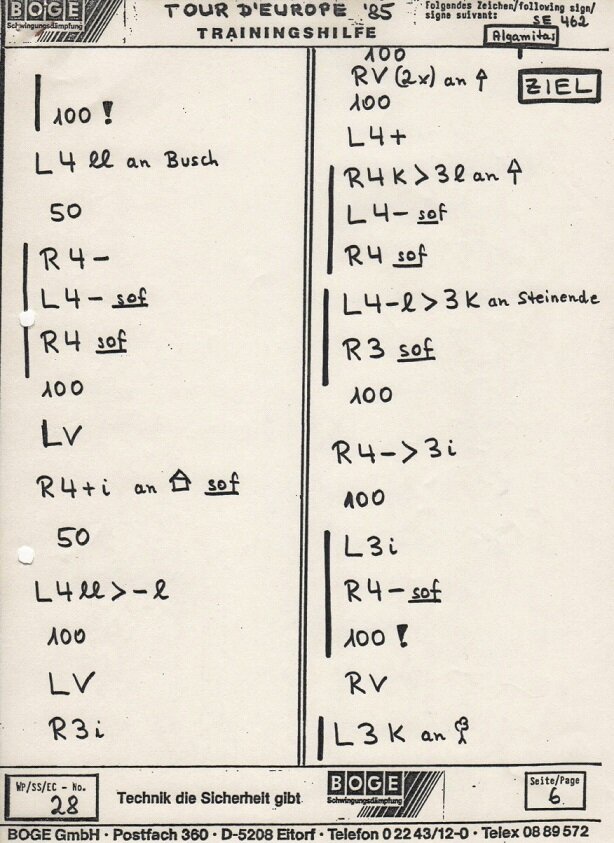 BOGE
Schwingungsdämpfung
TOUR D'EUROPE '85
TRAININGSHILFE
folgendes Zeichen/following sign/
signe suivant:
SE 462
Algamitas
100 !
L4 ll an Busch
50
R4-
L4- sof
R4 sof
100
LV
R4+i an sof
50
L4ll>-l
100
LV
R3i
100
RV (2x) an
ZIEL
100
L4+
R4K>3l an
L4- sof
R4 sof
L4-l>3K an Steinende
R3 sof
100
R4->3i
100
L3i
R4- sof
100 !
RV
L3K an
WP/SS/EC - No.
28
Technik die Sicherheit gibt
BOGE
Schwingungsdämpfung
Seite/Page
6
BOGE GmbH · Postfach 360 · D-5208 Eitorf · Telefon 0 22 43/12-0 · Telex 08 89 572